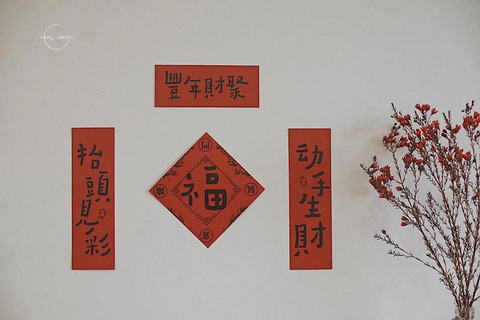 豐年財聚
抬頭見彩
福
动手生財